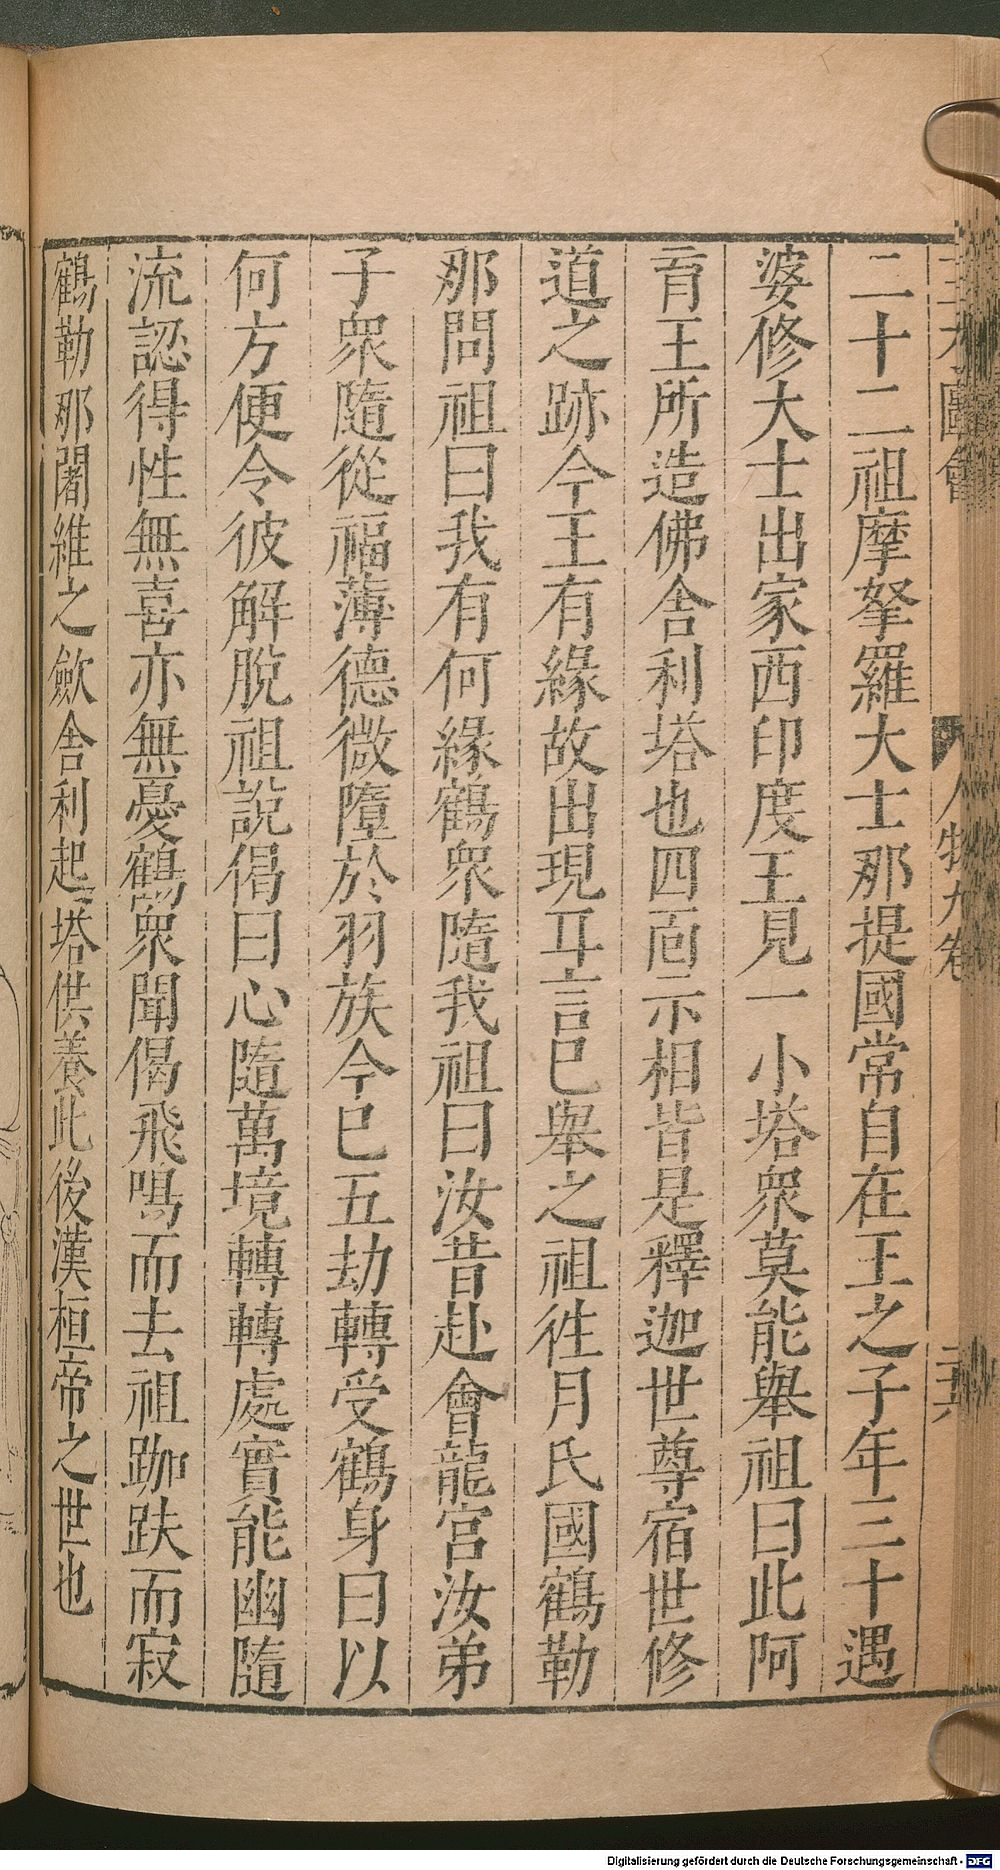 三才圖會
人物九卷
二十二祖摩拏羅大士那提國常自在王之子年三十遇
婆修大士出家西印度王見一小塔衆莫能舉祖曰此阿
育王所造佛舍利塔也四面示相皆是釋迦世尊宿世修
道之跡今王有緣故出現耳言已舉之祖徃月氏國鶴勒
那問祖曰我有何緣鶴衆隨我祖曰汝昔赴會龍宮汝弟
子衆隨從福薄德微墮於羽族今已五劫轉受鶴身曰以
何方便令彼解脫祖說偈曰心隨萬境轉轉處實能幽隨
流認得性無喜亦無憂鶴衆聞偈飛鳴而去祖跏趺而寂
鶴勒那闍維之歛舍利起塔供養此後漢桓帝之世也
Digitalisierung gefördert durch die Deutsche Forschungsgemeinschaft - DFG